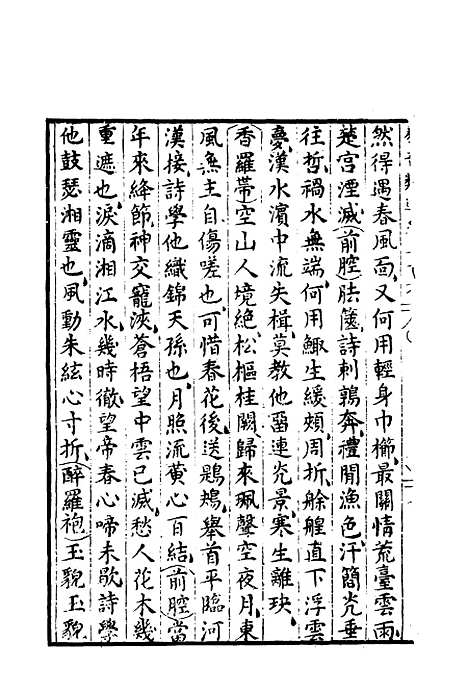 然得遇春風面又何用輕身巾櫛最關情荒臺雲雨
楚宮湮滅(前腔)胠篋詩刺鶉奔禮閒漁色汗簡光垂
往哲禍水無端何用鯫生緩頰周折艅艎直下浮雲
憂漢水濱中流失楫莫教他留連光景寒生離玦
(香羅帶)空山人境絕松樞桂闕歸來珮聲空夜月東
風無主自傷嗟也可惜春花後送鶗鴂舉首平臨河
漢接詩學他織錦天孫也月照流黃心百結(前腔)當
年來絳節神交寵浹蒼梧望中雲已滅愁人花木幾
重遮也淚滴湘江水幾時徹望帝春心啼未歇詩學
他鼓瑟湘靈也風動朱絃心寸折(醉羅袍)玉貌玉貌